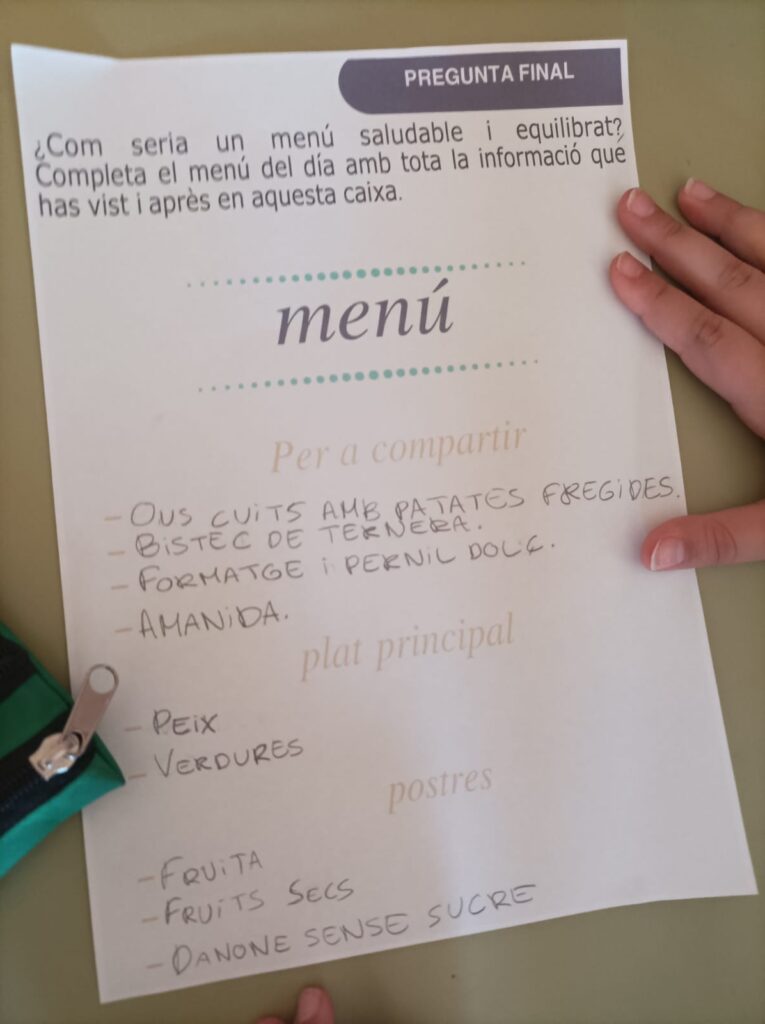 PREGUNTA FINAL
¿Com seria un menú saludable i equilibrat?
Completa el menú del día amb tota la informació que
has vist i après en aquesta caixa.
menú
Per a compartir
- OUS CUITS AMB PATATES FREGIDES.
- BISTEC DE TERNERA.
- FORMATGE i PERNIL DOLÇ.
- AMANIDA.
plat principal
- PEIX
- VERDURES
postres
- FRUITA
- FRUITS SECS
- DANONE SENSE SUCRE